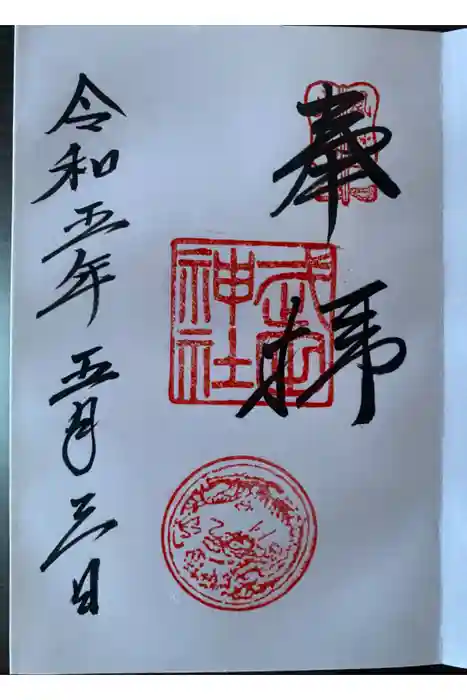 奉拝
神社
令和五年五月三日